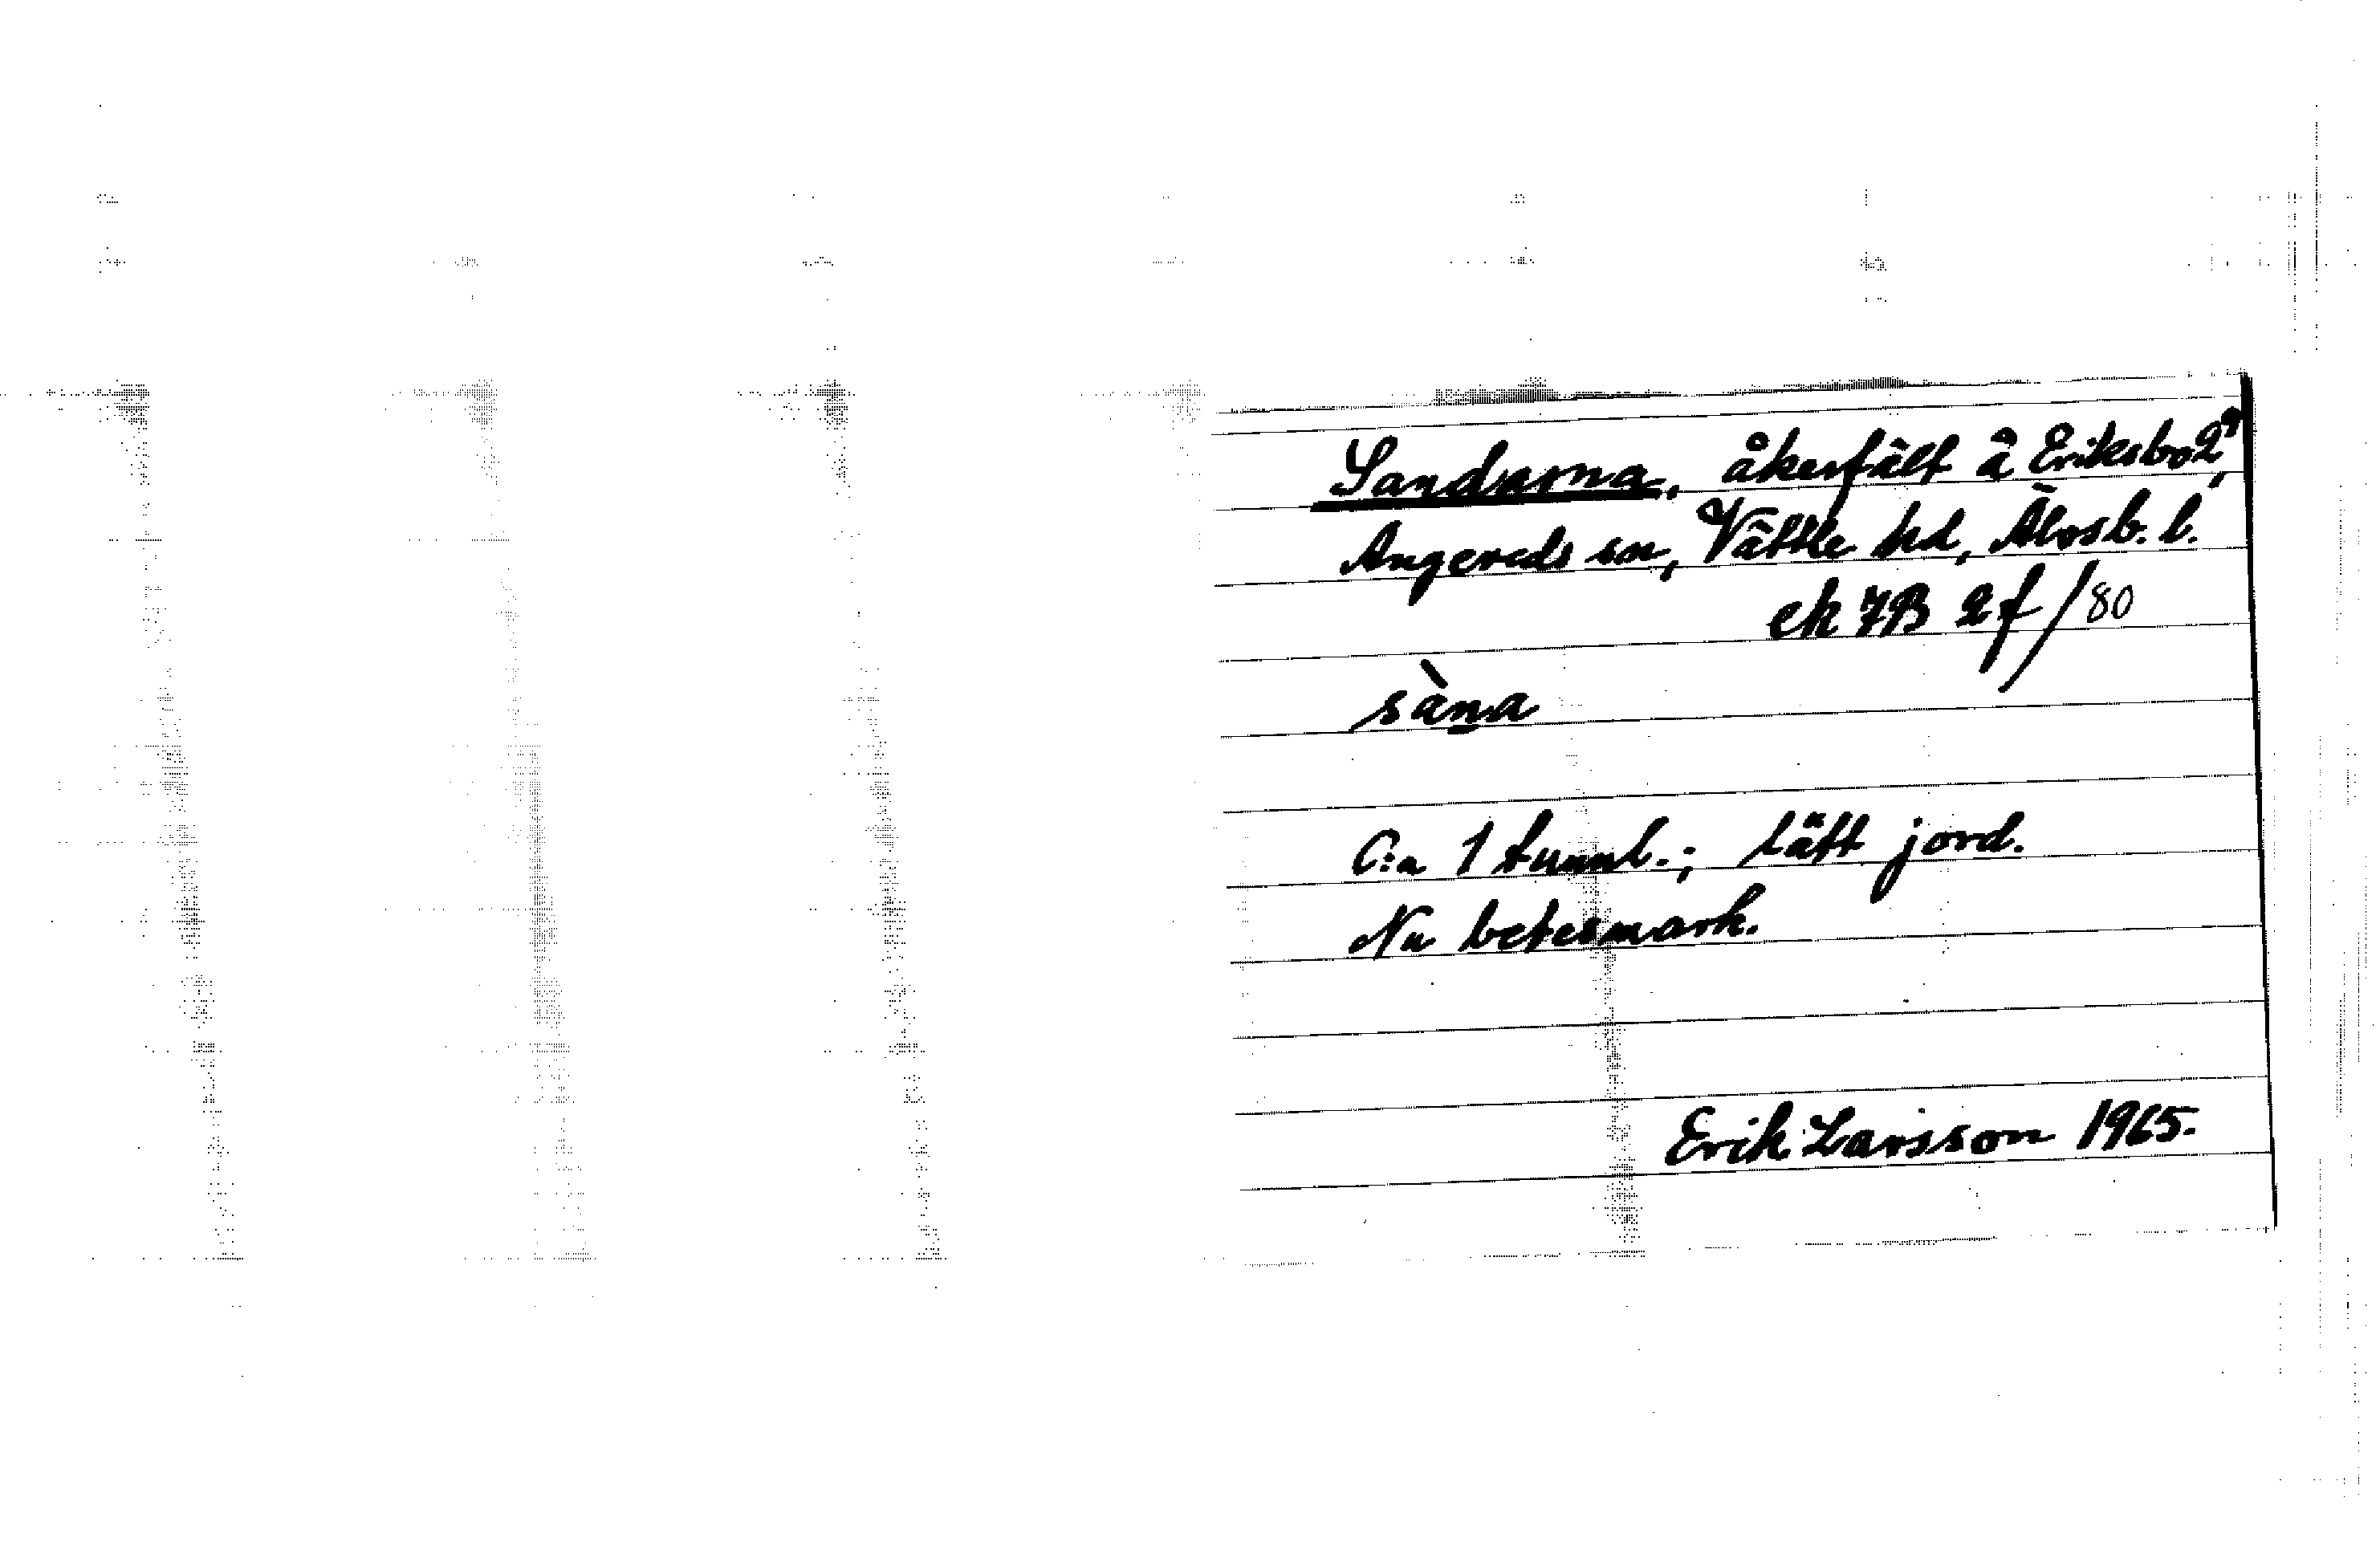 Sandarna, åkerfält å Eriksbo 2⁹,
Angereds sn, Vättle hd, Älvsb. l.
ek 7B 2f/80
sàna
C:a 1 tunnl.; lätt jord.
Nu betesmark.
Erik Larsson 1965.